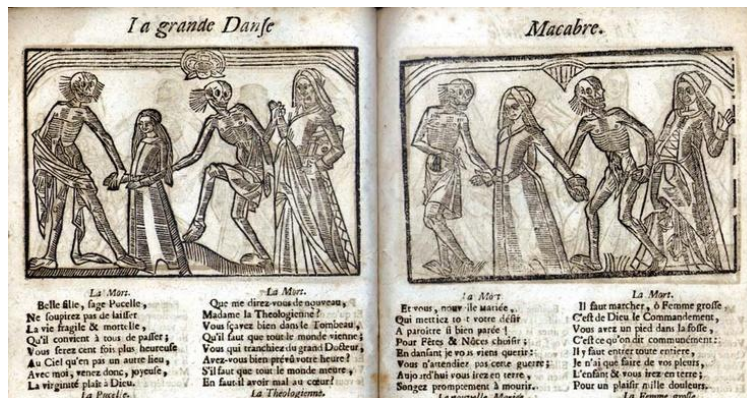 La grande Danse
Macabre.
La Mort.
Belle fille, sage Pucelle,
Ne soupirez pas de laisser
La vie fragile & mortelle,
Qu'il convient à tous de passer;
Vous serez cent fois plus heureuse
Au Ciel qu'en pas un autre lieu,
Avec moi, venez donc, joyeuse,
La virginité plaît à Dieu.
La Pucelle.
La Mort.
Que me direz-vous de nouveau,
Madame la Theologienne?
Vous sçavez bien dans le Tombeau,
Qu'il faut que tout le monde vienne;
Vous qui tranchiez du grand Docteur,
Avez-vous bien prévû votre heure?
S'il faut que tout le monde meure,
En faut-il avoir mal au cœur?
La Théologienne.
La Mort
Et vous, nouvelle mariée,
Qui mettiez tout votre désir
A paroître si bien parée!
Pour Fêtes & Nôces choisir;
En dansant je vous viens querir:
Vous n'attendiez pas cette guerre;
Aujourd'hui vous irez en terre,
Songez promptement à mourir.
La nouvelle Mariée.
La Mort.
Il faut marcher, ô Femme grosse,
C'est de Dieu le Commandement,
Vous avez un pied dans la fosse,
C'est ce qu'on dit communément:
Il y faut entrer toute entiere,
Je n'ai que faire de vos pleurs,
L'enfant & vous irez en terre;
Pour un plaisir mille douleurs.
La Femme grosse.